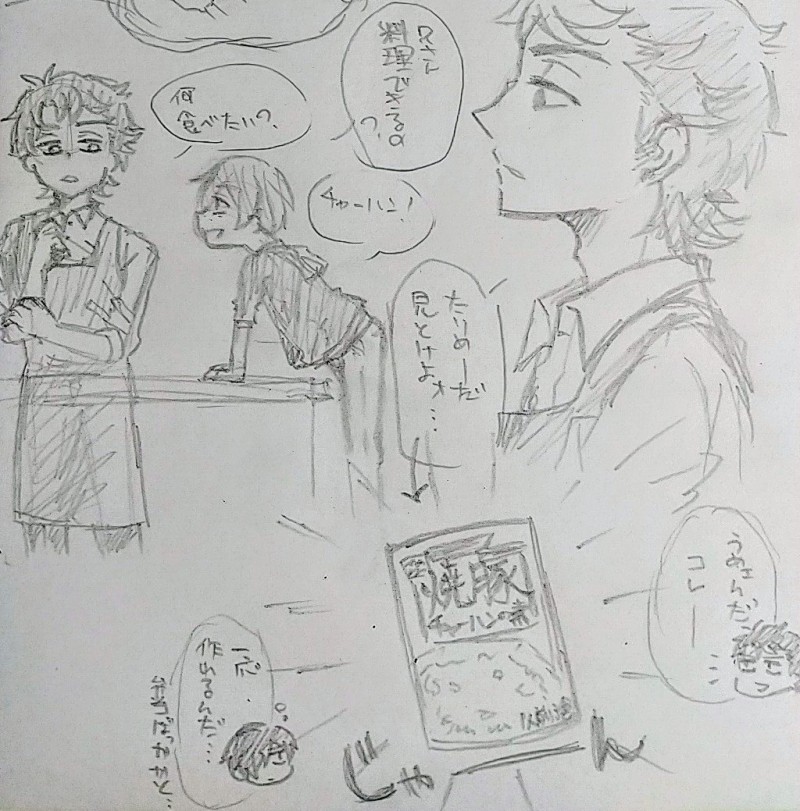 兄さん
料理できるの
?
何
食べたい?
チャーハン!
たりめーだ
見とけよォ…
焼豚
チャーハンの素
うめェんだ、
コレー…
一応
作れるんだ…
弁当ばっかかと…
じゃーん